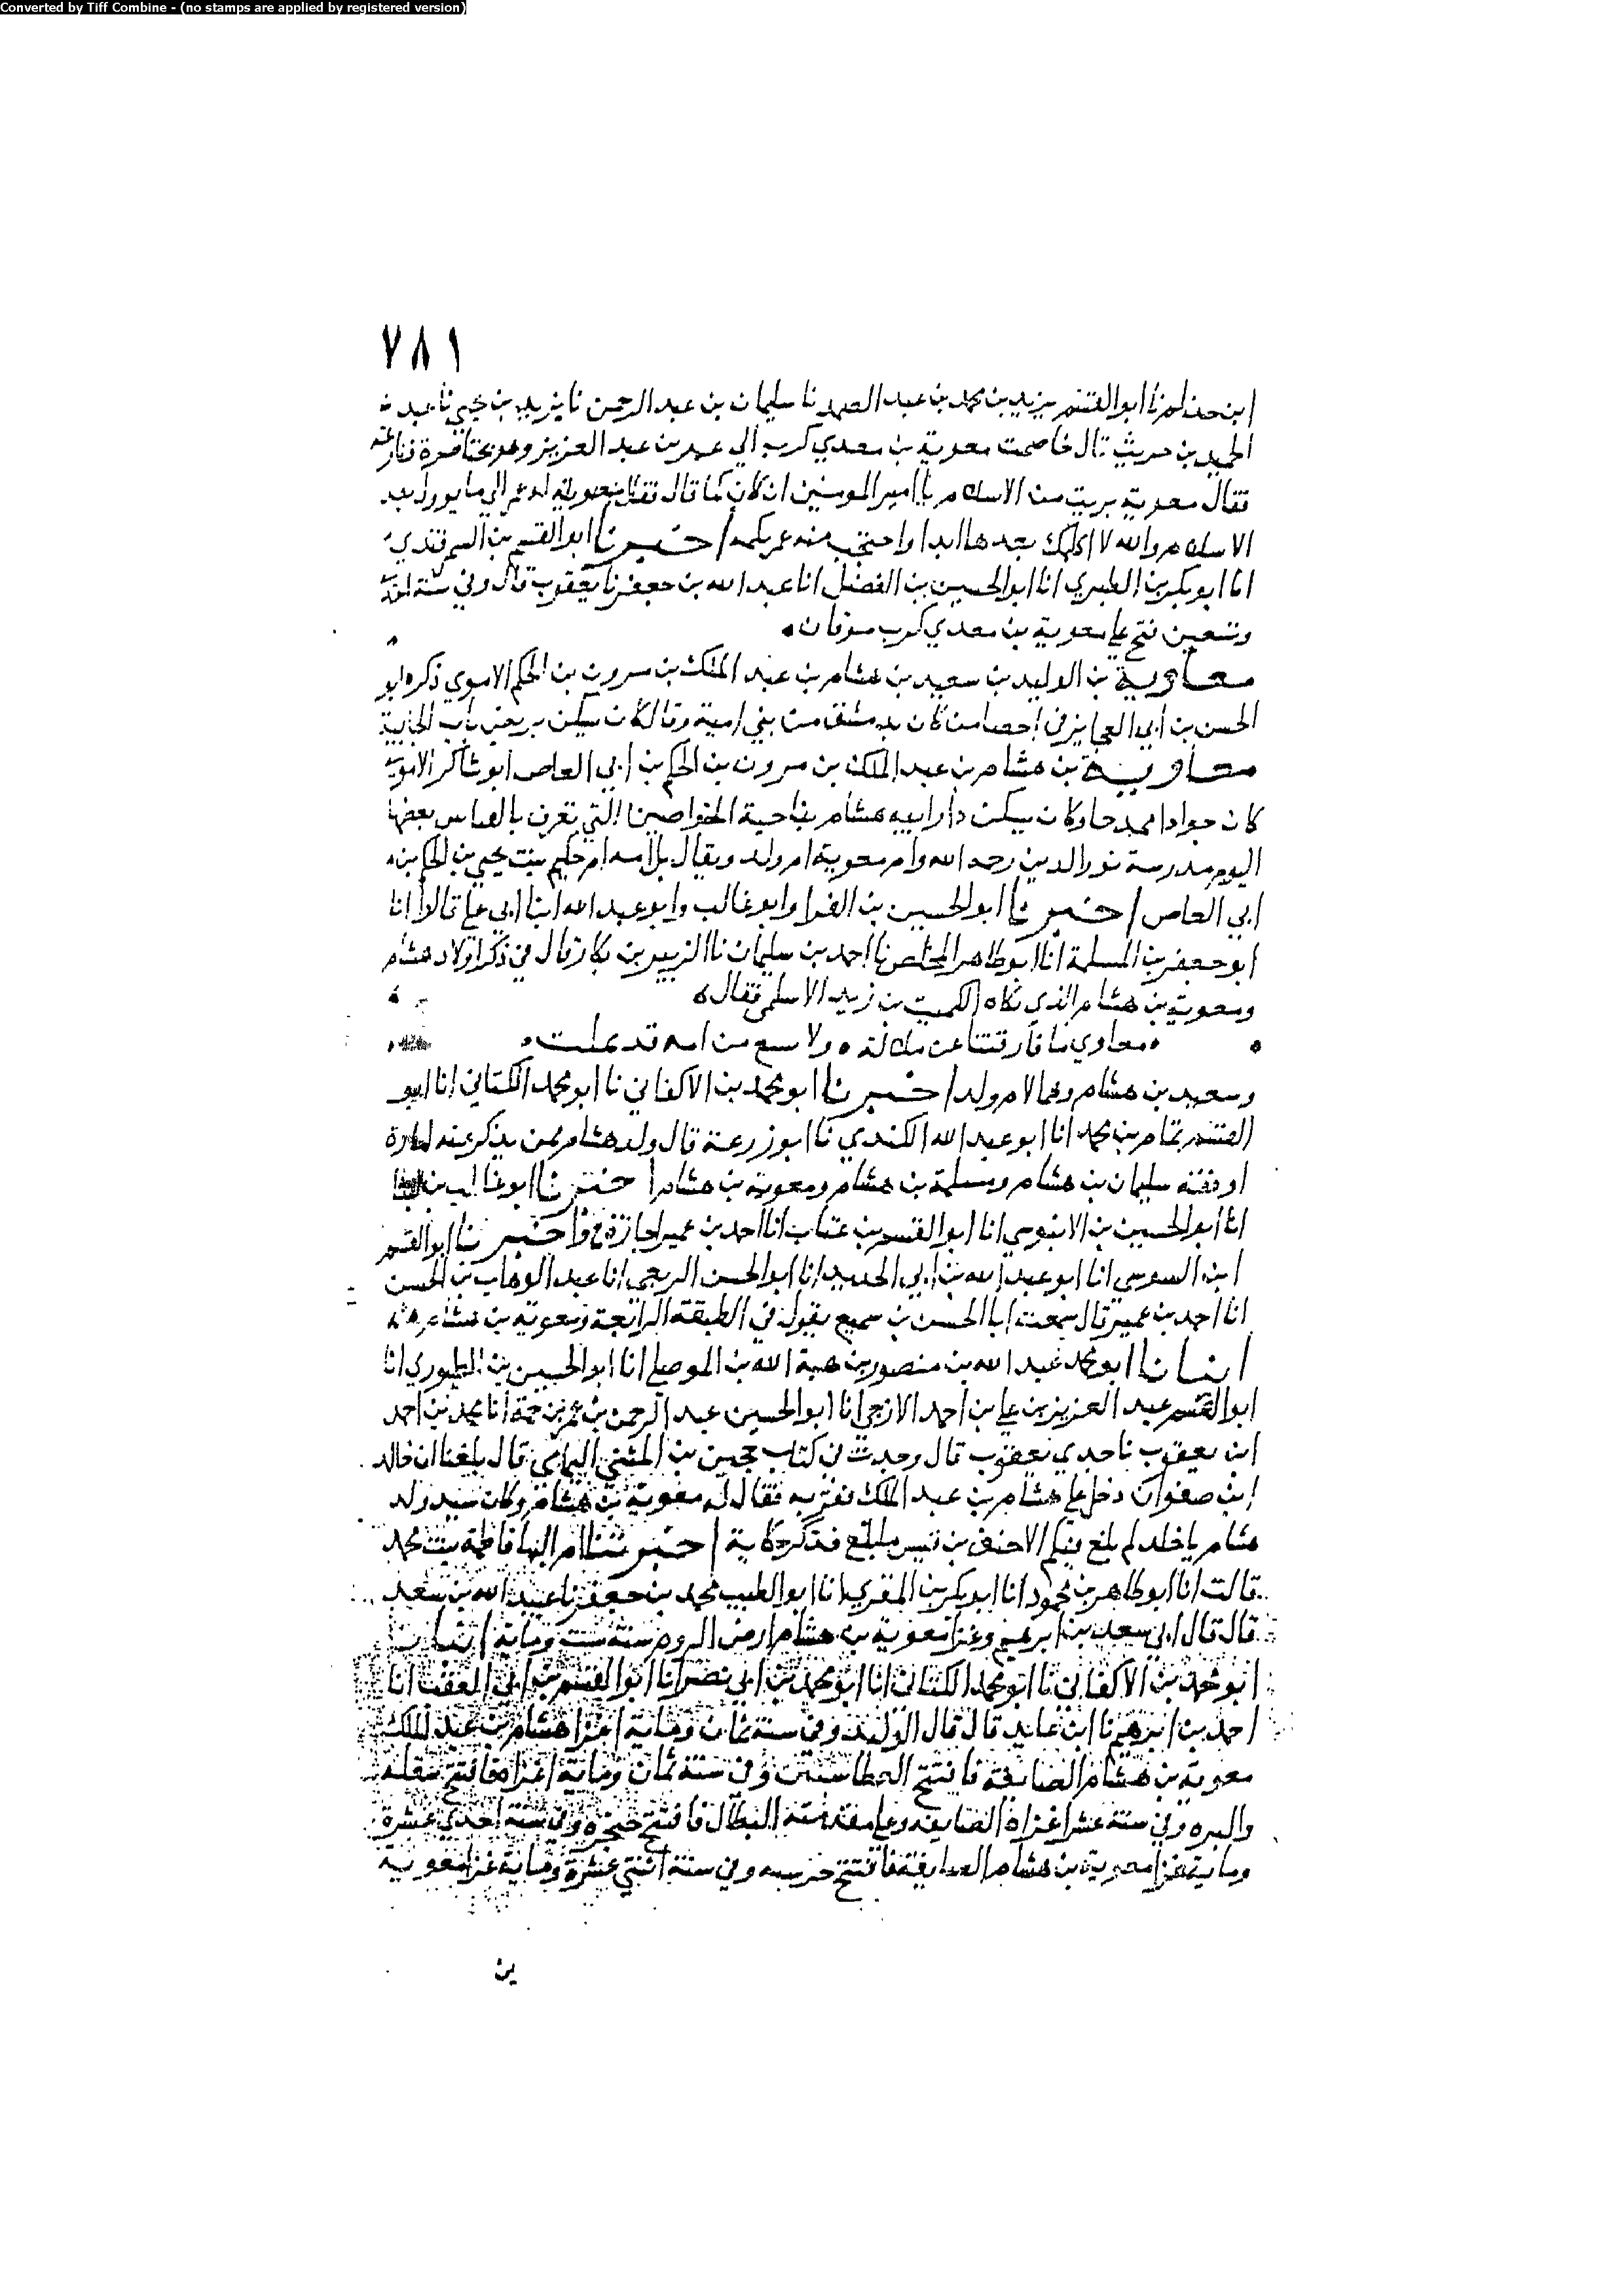 Converted by Tiff Combine - (no stamps are applied by registered version)
٧٨١
ابن حذلم نا ابو القسم يزيد بن محمد بن عبد الصمد نا سليمان بن عبد الرحمن نا يزيد بن يحيى نا عبد
الحميد بن حريث قال خاصمت معوية بن معدي كرب الي عمر بن عبد العزيز
فقال معوية بريت من الاسلام يا امير المومنين ان كان كما قال فقال
الاسلام والله لا اكلمك بعدها ابدا واحتجب منه عمر اخبرنا ابو القسم بن السمرقندي
انا ابو بكر بن الطبري انا ابو الحسين بن الفضل انا عبد الله بن جعفر نا يعقوب قال وفي سنة
وتسعين فتح علي معوية بن معدي كرب
معاوية بن الوليد بن سعيد بن هشام بن عبد الملك بن مرون بن الحكم الاموي ذكره ابو
الحسن بن ابي العجايز في احصا من كان بدمشق من بني امية وقال كان يسكن بربض باب الجابية
معاوية بن هشام بن عبد الملك بن مرون بن الحكم بن ابي العاص ابو شاكر الاموي
كان جوادا ممدحا وكان يسكن دار ابيه هشام بناحية الخواصين التي تعرف بالعباس بعضها
اليوم مدرسة نور الدين رحمه الله وام معوية ام ولد ويقال بل امه ام حكيم بنت يحيى بن الحكم بن
ابي العاص اخبرنا ابو الحسين بن الفرا وابو غالب وابو عبد الله ابنا ابي علي قالوا انا
ابو جعفر بن المسلمة انا ابو طاهر المخلص نا احمد بن سليمان نا الزبير بن بكار قال في ذكر اولاد هشام
ومعوية بن هشام الذي بكاه الكميت بن زيد الاسلمي فقال
معاوي ما فارقتنا عن ملالة ولا
وسعيد بن هشام وهما لام ولد اخبرنا ابو محمد بن الاكفاني نا ابو محمد الكتاني انا ابو
القسم تمام بن محمد انا ابو عبد الله الكندي نا ابو زرعة قال ولد هشام ممن يذكر عنه امارة
او فقه سليمان بن هشام ومسلمة بن هشام ومعوية بن هشام اخبرنا ابو غالب بن البنا
انا ابو الحسين بن الابنوسي انا ابو القسم بن عتاب انا احمد بن عمير اجازة ح واخبرنا ابو القسم
ابن السوسي انا ابو عبد الله بن ابي الحديد انا ابو الحسن الربعي انا عبد الوهاب بن الحسن
انا احمد بن عمير قال سمعت ابا الحسن بن سميع يقول في الطبقة الرابعة ومعوية بن هشام
انبانا ابو محمد عبد الله بن منصور بن هبة الله بن الموصلي انا ابو الحسين بن الطيوري انا
ابو القسم عبد العزيز بن علي بن احمد الازجي انا ابو الحسين عبد الرحمن بن عمر بن حمة انا محمد بن احمد
ابن يعقوب نا جدي يعقوب قال وجدت في كتاب حجين بن المثنى اليمامي قال بلغنا ان خالد
ابن صفوان دخل علي هشام بن عبد الملك فقربه فقال له معوية بن هشام وكان سيد ولد
هشام يا خلد لم بلغ فيكم الاحنف بن قيس ما بلغ فذكر حكاية اخبرتنا ام البها فاطمة بنت محمد
قالت انا ابو طاهر بن محمود انا ابو بكر بن المقري انا ابو الطيب محمد بن جعفر نا عبيد الله بن سعد
قال قال ابي سعد بن ابرهيم وغزا معوية بن هشام ارض الروم سنة ست وماية انبانا
ابو محمد بن الاكفاني نا ابو محمد الكتاني انا ابو محمد بن ابي نصر انا ابو القسم بن ابي العقب انا
احمد بن ابرهيم نا ابن عايد قال قال الوليد وفي سنة ثمان وماية اغزا هشام بن عبد الملك
معوية بن هشام الصايفة فافتتح وفي سنة ثمان وماية اغزاه فافتتح
والبره وفي سنة عشر اغزاه الصايفه وعلي مقدمته البطال فافتتح خنجره وفي سنة احدي عشرة
وماية غزا معوية بن هشام الصايفة فافتتح خرسه وفي سنة اثنتي عشرة وماية غزا معوية
بن